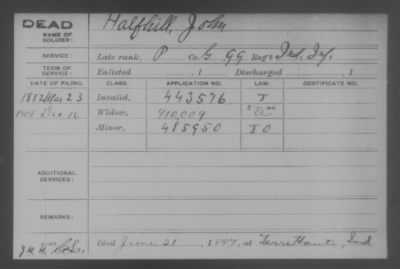 DEAD
NAME OF SOLDIER: Halfhill, John
SERVICE: Late rank, P Co. G Reg't Ind. Inf.
TERM OF SERVICE: Enlisted , 1 Discharged , 1
DATE OF FILING. CLASS. APPLICATION NO. LAW. CERTIFICATE NO.
23 Invalid, 443576 J
Widow, 410,009
Minor, 485950 J O
ADDITIONAL SERVICES:
REMARKS:
Died June 21, 1887, at Terre Haute, Ind